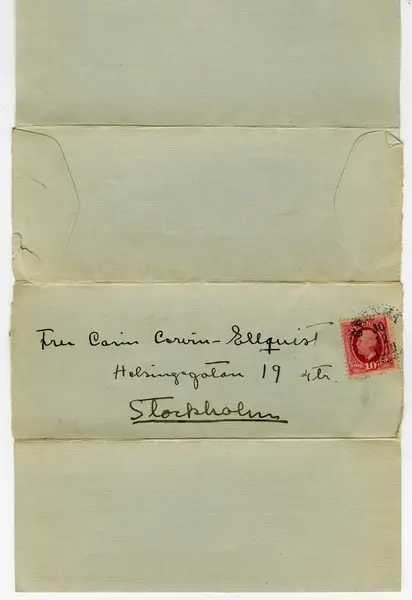 Fru Carin Corvin-Ellquist
Helsingegatan 19 4tr.
Stockholm
10